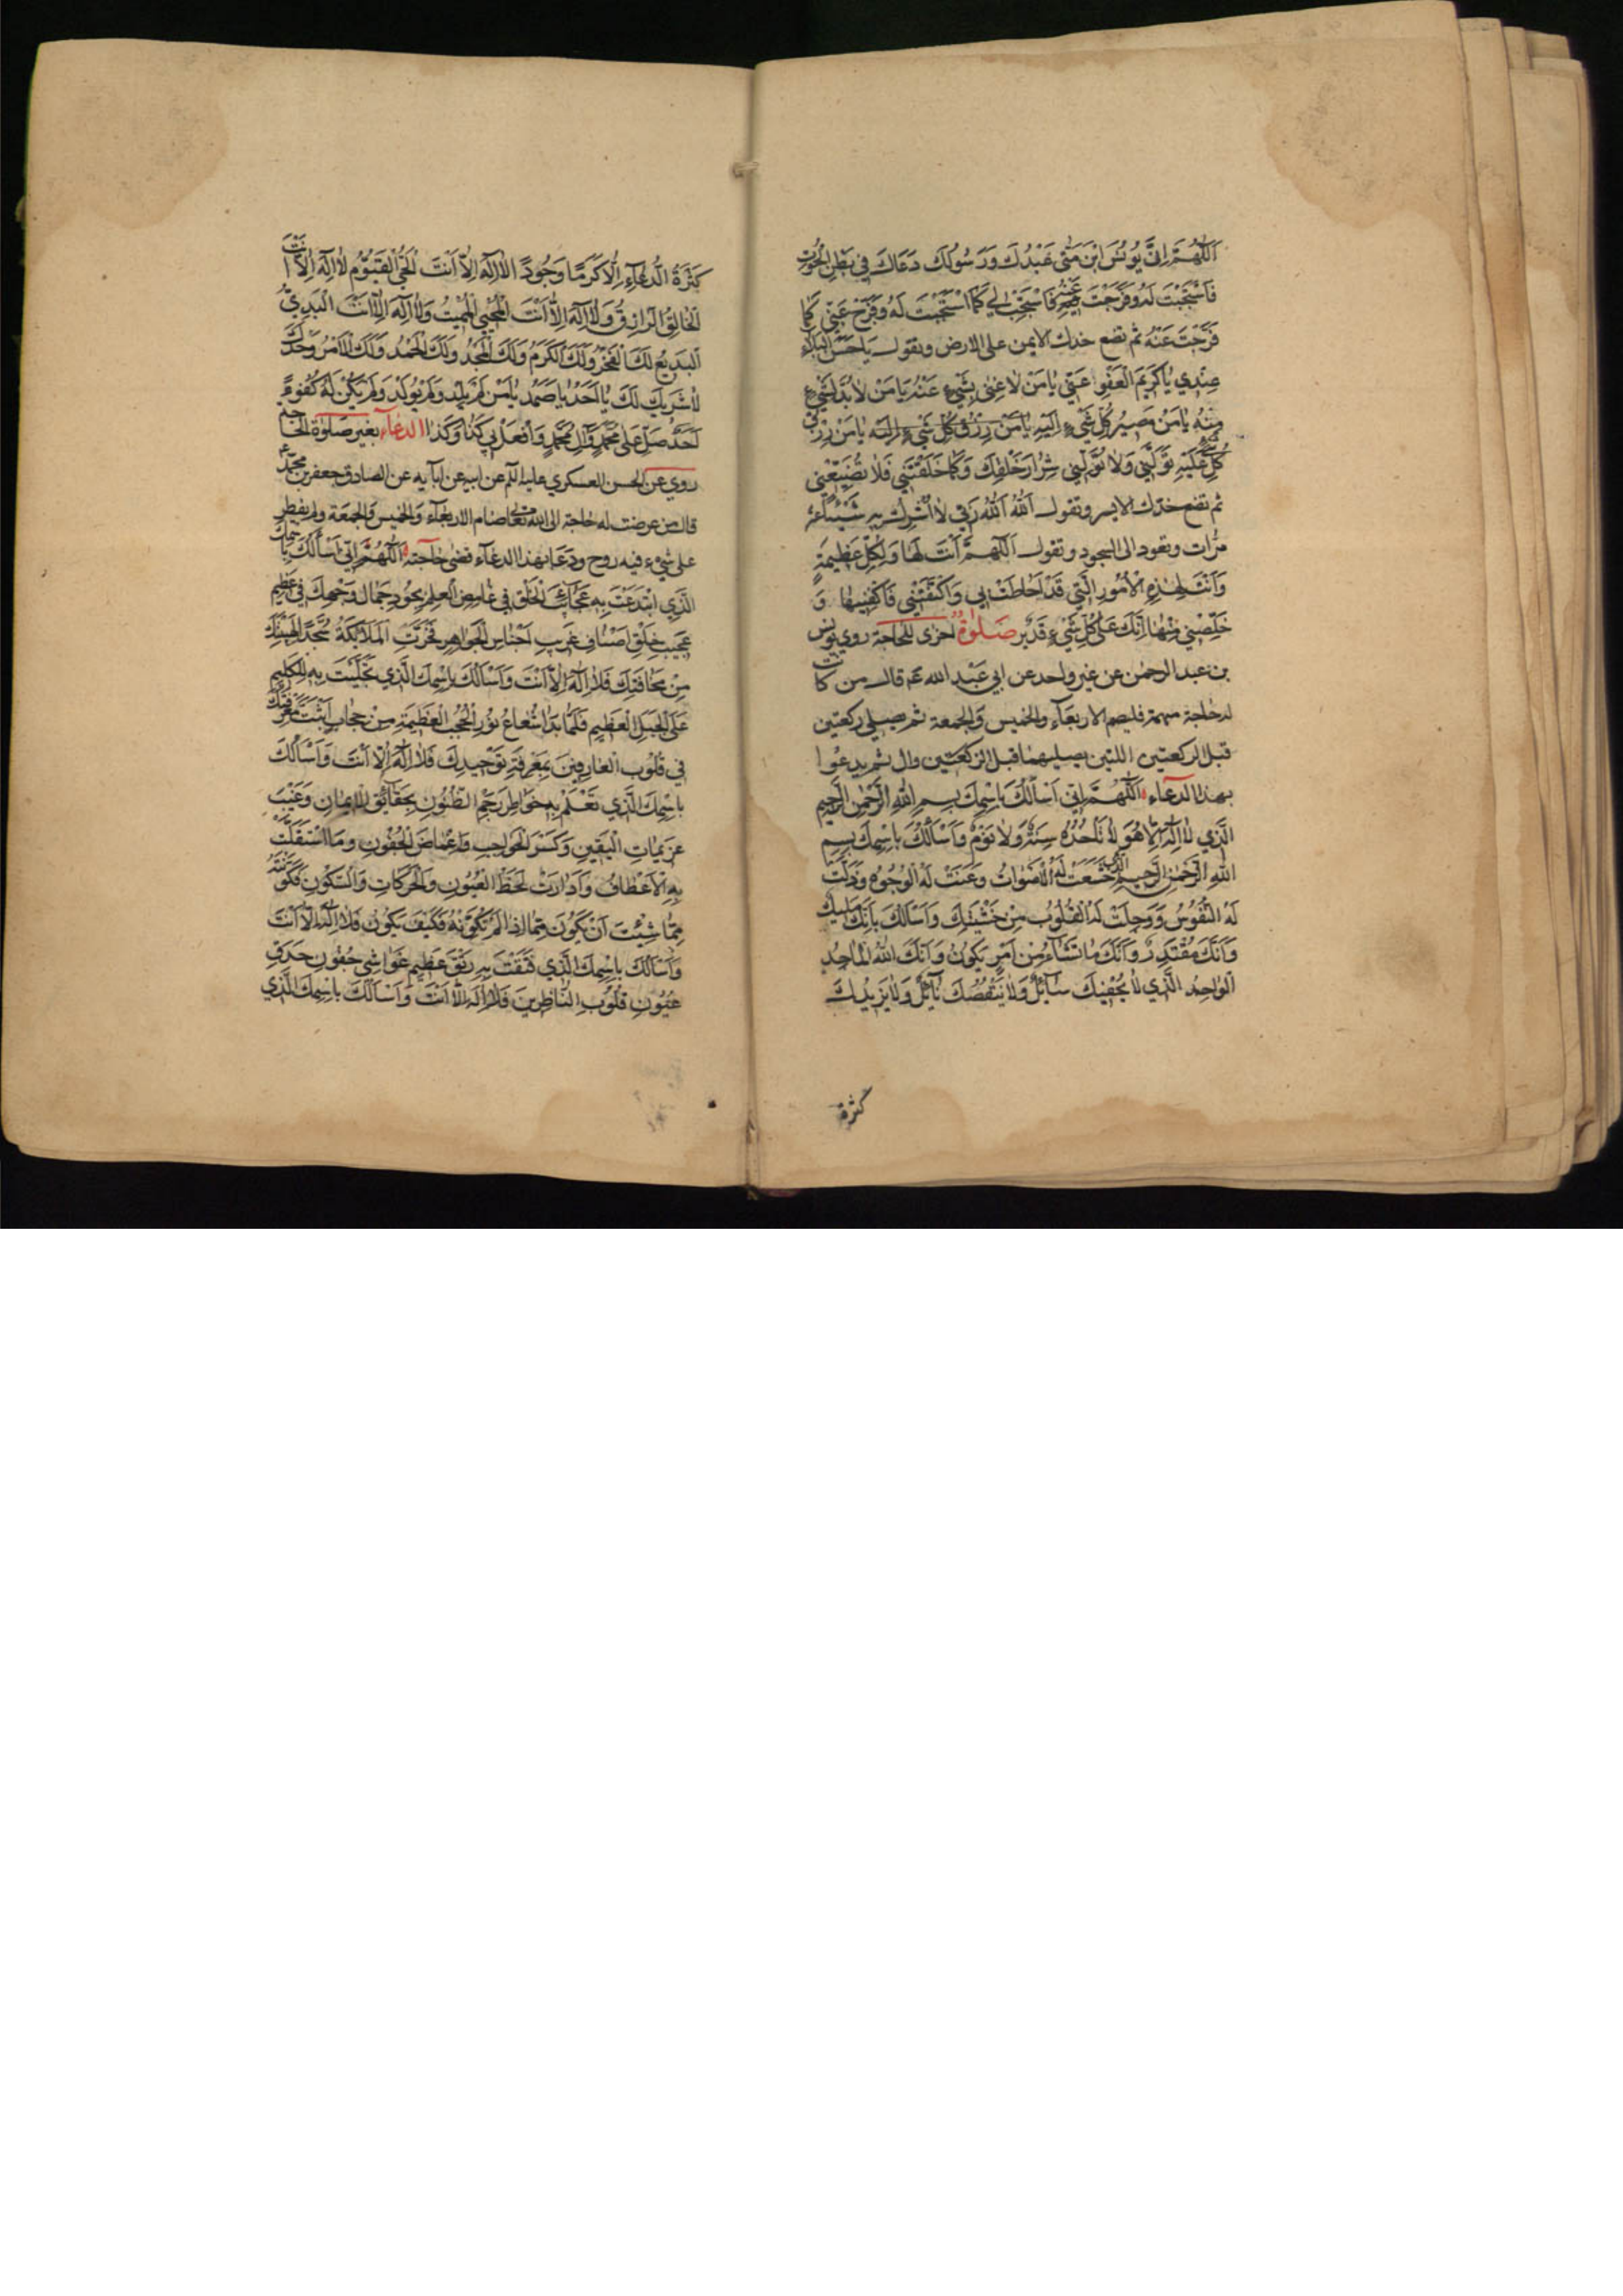 اَللّٰهُمَّ اِنَّ يُونُسَ ابْنَ مَتّٰى عَبْدُكَ وَرَسُولُكَ دَعَاكَ فِي بَطْنِ الْحُوتِ
فَاسْتَجَبْتَ لَهُ وَفَرَّجْتَ عَنْهُ فَاسْتَجِبْ لِي كَمَا اسْتَجَبْتَ لَهُ وَفَرِّجْ عَنِّي كَمَا
فَرَّجْتَ عَنْهُ ثم تضع خدك الايمن على الارض وتقول يَا حَسَنَ الْبَلَاءِ
عِنْدِي يَا كَرِيمَ الْعَفْوِ عَنِّي يَا مَنْ لَا غِنٰى بِشَيْءٍ عَنْهُ يَا مَنْ لَا بُدَّ لِشَيْءٍ
مِنْهُ يَا مَنْ مَصِيرُ كُلِّ شَيْءٍ اِلَيْهِ يَا مَنْ رِزْقُ كُلِّ شَيْءٍ يَا مَنْ رِزْقُ
كُلِّ شَيْءٍ عَلَيْهِ تَوَلَّنِي وَلَا تُوَلِّنِي شِرَارَ خَلْقِكَ وَكَمَا خَلَقْتَنِي فَلَا تُضَيِّعْنِي
ثم تضع خدك الايسر وتقول اَللّٰهُ اَللّٰهُ رَبِّي لَا اُشْرِكُ بِهِ شَيْئًا
مرات وتعود الى السجود وتقول اَللّٰهُمَّ اَنْتَ لَهَا وَلِكُلِّ عَظِيمَةٍ
وَاَنْتَ لِهٰذِهِ الْاُمُورِ الَّتِي قَدْ اَحَاطَتْ بِي وَاكْتَنَفَتْنِي فَاكْفِنِيهَا وَ
خَلِّصْنِي مِنْهَا اِنَّكَ عَلٰى كُلِّ شَيْءٍ قَدِيرٌ صَلٰوةٌ اخرى للحاجة روى يونس
بن عبد الرحمٰن عن غير واحد عن ابي عَبْدِ الله عم قال من كانت
له حاجة مهمة فليصم الاربعاء والخميس والجمعة ثم يصلي ركعتين
قبل الركعتين اللتين يصليهما قبل الزوال ثم يدعوا
بهذا الدعاء اَللّٰهُمَّ اِنِّي اَسْأَلُكَ بِاسْمِكَ بِسْمِ اللّٰهِ الرَّحْمٰنِ الرَّحِيمِ
الَّذِي لَا اِلٰهَ اِلَّا هُوَ لَا تَأْخُذُهُ سِنَةٌ وَلَا نَوْمٌ وَاَسْأَلُكَ بِاسْمِكَ بِسْمِ
اللّٰهِ الرَّحْمٰنِ الرَّحِيمِ الَّذِي خَشَعَتْ لَهُ الْاَصْوَاتُ وَعَنَتْ لَهُ الْوُجُوهُ وَذَلَّتْ
لَهُ النُّفُوسُ وَوَجِلَتْ لَهُ الْقُلُوبُ مِنْ خَشْيَتِكَ وَاَسْأَلُكَ بِاَنَّكَ مَلِيكٌ
وَاَنَّكَ مُقْتَدِرٌ وَاَنَّكَ مَا تَشَاءُ مِنْ اَمْرٍ يَكُونُ وَاَنَّكَ اللّٰهُ الْمَاجِدُ
الْوَاحِدُ الَّذِي لَا يُحْفِيكَ سَائِلٌ وَلَا يَنْقُصُكَ نَائِلٌ وَلَا يَزِيدُكَ
كثرة
كَثْرَةُ الدُّعَاءِ اِلَّا كَرَمًا وَجُودًا لَا اِلٰهَ اِلَّا اَنْتَ الْحَيُّ الْقَيُّومُ لَا اِلٰهَ اِلَّا اَنْتَ
الْخَالِقُ الرَّازِقُ وَلَا اِلٰهَ اِلَّا اَنْتَ الْمُحْيِي الْمُمِيتُ وَلَا اِلٰهَ اِلَّا اَنْتَ الْبَدِيُّ
الْبَدِيعُ لَكَ الْفَخْرُ وَلَكَ الْكَرَمُ وَلَكَ الْمَجْدُ وَلَكَ الْحَمْدُ وَلَكَ الْاَمْرُ وَحْدَكَ
لَا شَرِيكَ لَكَ يَا اَحَدُ يَا صَمَدُ يَا مَنْ لَمْ يَلِدْ وَلَمْ يُولَدْ وَلَمْ يَكُنْ لَهُ كُفُوًا
اَحَدٌ صَلِّ عَلٰى مُحَمَّدٍ وَآلِ مُحَمَّدٍ وَافْعَلْ بِي كَذَا وَكَذَا الدعاء بغير صلوة الحاجة
روي عن الحسن العسكري عليه السلم عن ابيه عن ابآيه عن الصادق جعفر بن محمد ع
قال من عرضت له حاجة الى الله تعالى صام الاربعاء والخميس والجمعة ولم يفطر
على شيء فيه روح ودعا بهذا الدعاء قضى حاجته اَللّٰهُمَّ اِنِّي اَسْأَلُكَ بِاسْمِكَ
الَّذِي ابْتَدَعْتَ بِهِ عَجَائِبَ الْخَلْقِ فِي غَامِضِ الْعِلْمِ بِجُودِ جَمَالِ وَجْهِكَ فِي عَظِيمِ
عَجِيبِ خَلْقِ اَصْنَافِ غَرِيبِ اَجْنَاسِ الْجَوَاهِرِ فَخَرَّتِ الْمَلَائِكَةُ سُجَّدًا لِهَيْبَتِكَ
مِنْ مَخَافَتِكَ فَلَا اِلٰهَ اِلَّا اَنْتَ وَاَسْأَلُكَ بِاسْمِكَ الَّذِي تَجَلَّيْتَ بِهِ لِلْكَلِيمِ
عَلَى الْجَبَلِ الْعَظِيمِ فَلَمَّا بَدَا شُعَاعُ نُورِ الْحُجُبِ الْعَظِيمَةِ مِنْ حِجَابِ اَثْبَتَّ مَعْرِفَتَكَ
فِي قُلُوبِ الْعَارِفِينَ بِمَعْرِفَةِ تَوْحِيدِكَ فَلَا اِلٰهَ اِلَّا اَنْتَ وَاَسْأَلُكَ
بِاسْمِكَ الَّذِي تَعْلَمُ بِهِ خَوَاطِرَ رَجْمِ الظُّنُونِ بِحَقَائِقِ الْاِيمَانِ وَغَيْبَ
عَزِيمَاتِ الْيَقِينِ وَكَسْرَ الْحَوَاجِبِ وَاِغْمَاضَ الْجُفُونِ وَمَا اسْتَقَلَّتْ
بِهِ الْاَعْطَافُ وَاَدَارَتْ لَحَظُ الْعُيُونِ وَالْحَرَكَاتِ وَالسُّكُونِ فَكَوَّنْتَهُ
مِمَّا شِئْتَ اَنْ يَكُونَ مِمَّا اِذَا لَمْ تُكَوِّنْهُ فَكَيْفَ يَكُونُ فَلَا اِلٰهَ اِلَّا اَنْتَ
وَاَسْأَلُكَ بِاسْمِكَ الَّذِي فَتَقْتَ بِهِ رَتْقَ عَظِيمِ غَوَاشِي جُفُونِ حَدَقِ
عُيُونِ قُلُوبِ النَّاظِرِينَ فَلَا اِلٰهَ اِلَّا اَنْتَ وَاَسْأَلُكَ بِاسْمِكَ الَّذِي